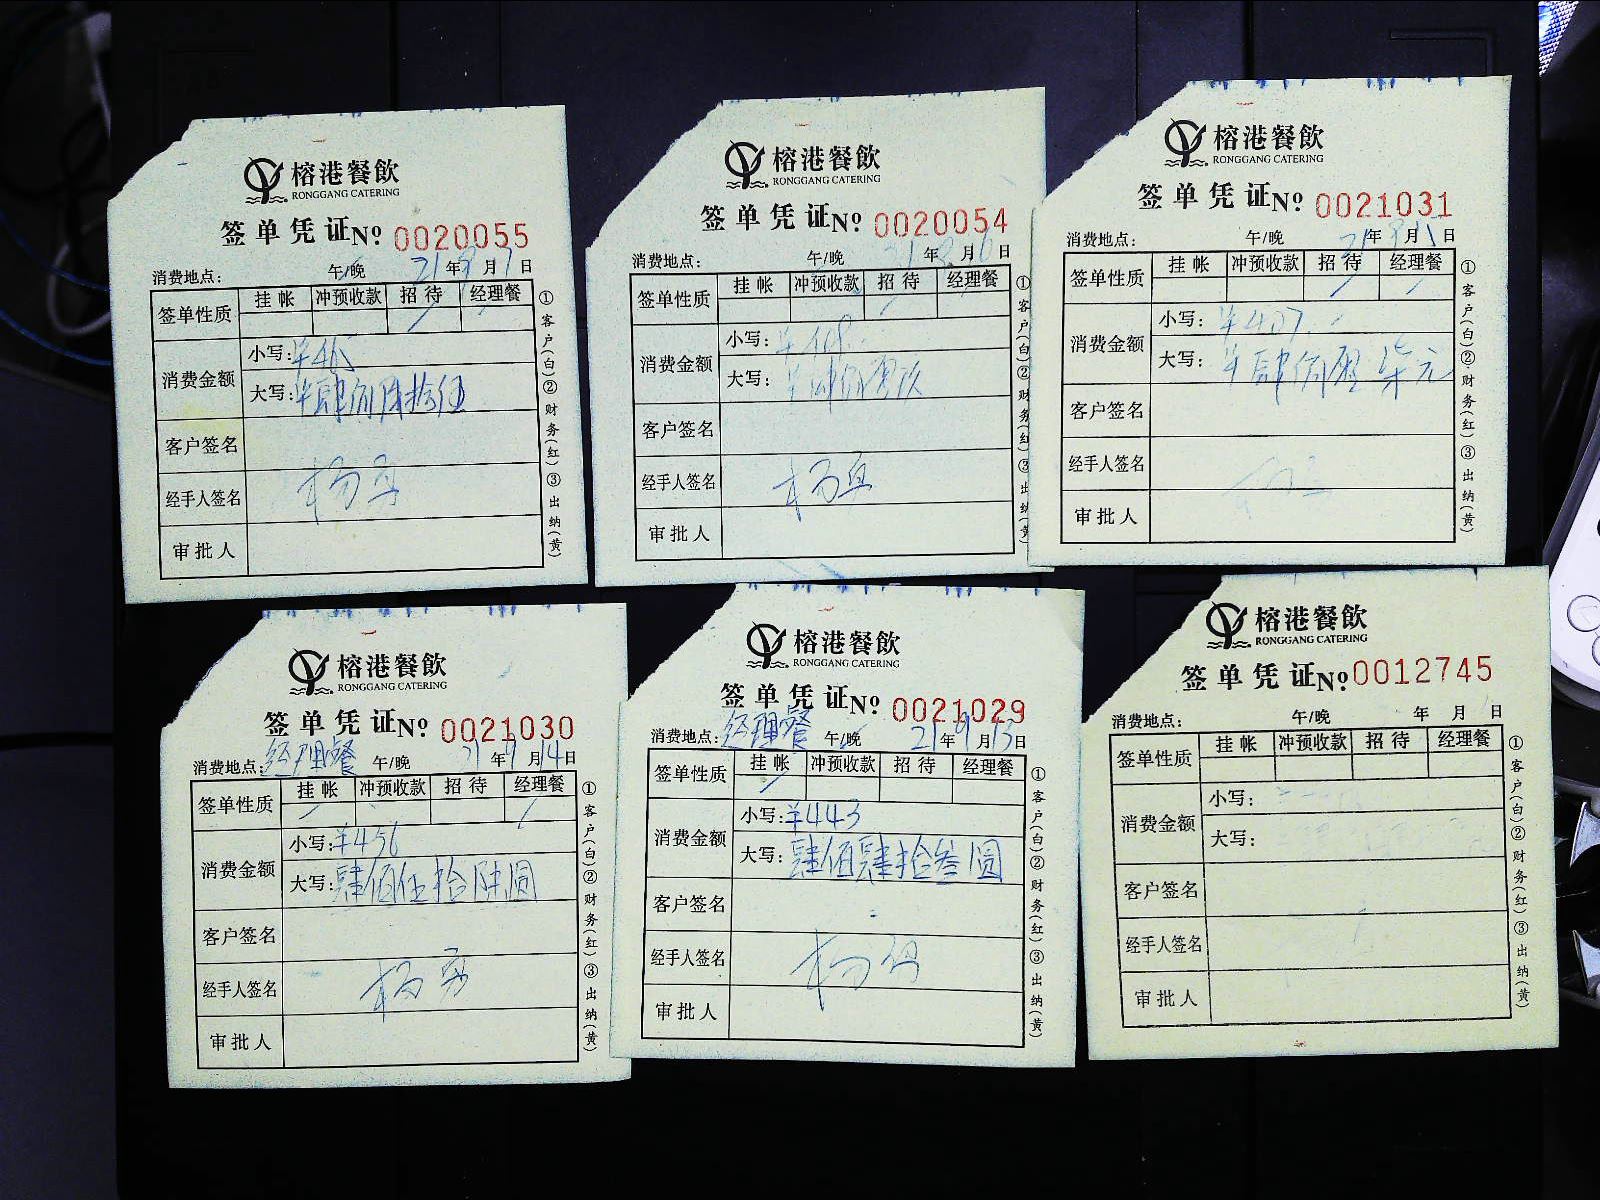 榕港餐飲
RONGGANG CATERING
签单凭证No 0020055
消费地点: 午/晚 21年9月7日
签单性质 挂帐 冲预收款 招待 经理餐
消费金额 小写:¥465
大写:肆佰陆拾伍
客户签名
经手人签名
审批人
①客户(白)②财务(红)③出纳(黄)
榕港餐飲
RONGGANG CATERING
签单凭证No 0020054
消费地点: 午/晚 年 月 日
签单性质 挂帐 冲预收款 招待 经理餐
消费金额 小写:
大写:
客户签名
经手人签名
审批人
①客户(白)②财务(红)③出纳(黄)
榕港餐飲
RONGGANG CATERING
签单凭证No 0021031
消费地点: 午/晚 21年 月 日
签单性质 挂帐 冲预收款 招待 经理餐
消费金额 小写:¥407
大写:肆佰零柒元
客户签名
经手人签名
审批人
①客户(白)②财务(红)③出纳(黄)
榕港餐飲
RONGGANG CATERING
签单凭证No 0021030
消费地点:经理餐 午/晚 21年9月14日
签单性质 挂帐 冲预收款 招待 经理餐
消费金额 小写:¥456
大写:肆佰伍拾陆圆
客户签名
经手人签名
审批人
①客户(白)②财务(红)③出纳(黄)
榕港餐飲
RONGGANG CATERING
签单凭证No 0021029
消费地点:经理餐 午/晚 21年9月13日
签单性质 挂帐 冲预收款 招待 经理餐
消费金额 小写:¥443
大写:肆佰肆拾叁圆
客户签名
经手人签名
审批人
①客户(白)②财务(红)③出纳(黄)
榕港餐飲
RONGGANG CATERING
签单凭证No 0012745
消费地点: 午/晚 年 月 日
签单性质 挂帐 冲预收款 招待 经理餐
消费金额 小写:
大写:
客户签名
经手人签名
审批人
①客户(白)②财务(红)③出纳(黄)